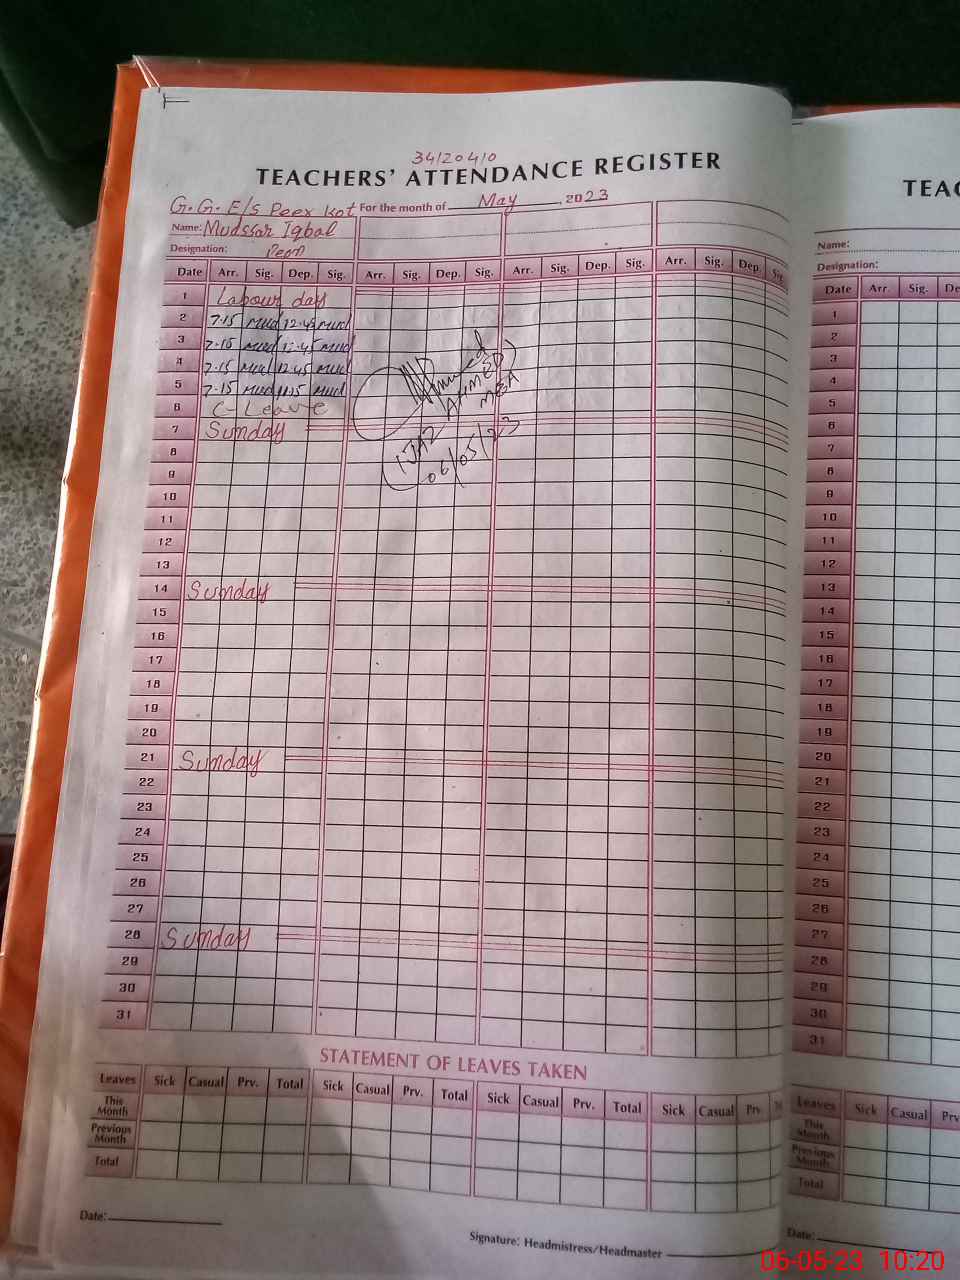 34120410
TEACHERS' ATTENDANCE REGISTER
G.G. E/S Peer kot For the month of May, 2023
Name: Mudssar Iqbal
Designation: Peon
Date Arr. Sig. Dep. Sig. Arr. Sig. Dep. Sig. Arr. Sig. Dep. Sig. Arr. Sig. Dep. Sig.
1 Labour day
2 7.15 Mud 12.45 Mud
3 7.15 Mud 12.45 Mud
4 7.15 Mud 12.45 Mud
5 7.15 Mud 11.15 Mud
6 C-Leave
7 Sunday
8
9
10
11
12
13
14 Sunday
15
16
17
18
19
20
21 Sunday
22
23
24
25
26
27
28 Sunday
29
30
31
(IJAZ AHMED)
MEA
06/05/23
STATEMENT OF LEAVES TAKEN
Leaves Sick Casual Prv. Total Sick Casual Prv. Total Sick Casual Prv. Total Sick Casual Prv.
This Month
Previous Month
Total
Date:
Signature: Headmistress/Headmaster
TEAC
Name:
Designation:
Date Arr. Sig. De
1
2
3
4
5
6
7
8
9
10
11
12
13
14
15
16
17
18
19
20
21
22
23
24
25
26
27
28
29
30
31
Leaves Sick Casual Prv
This Month
Previous Month
Total
Date:
06-05-23 10:20